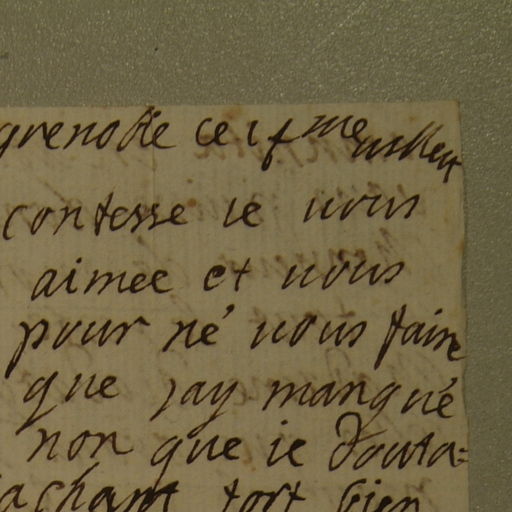 grenoble ce 1f me juillet
contesse ie vous
aimee et vous
pour né vous faire
que jay manqué
non que ie douta=
sachant fort bien